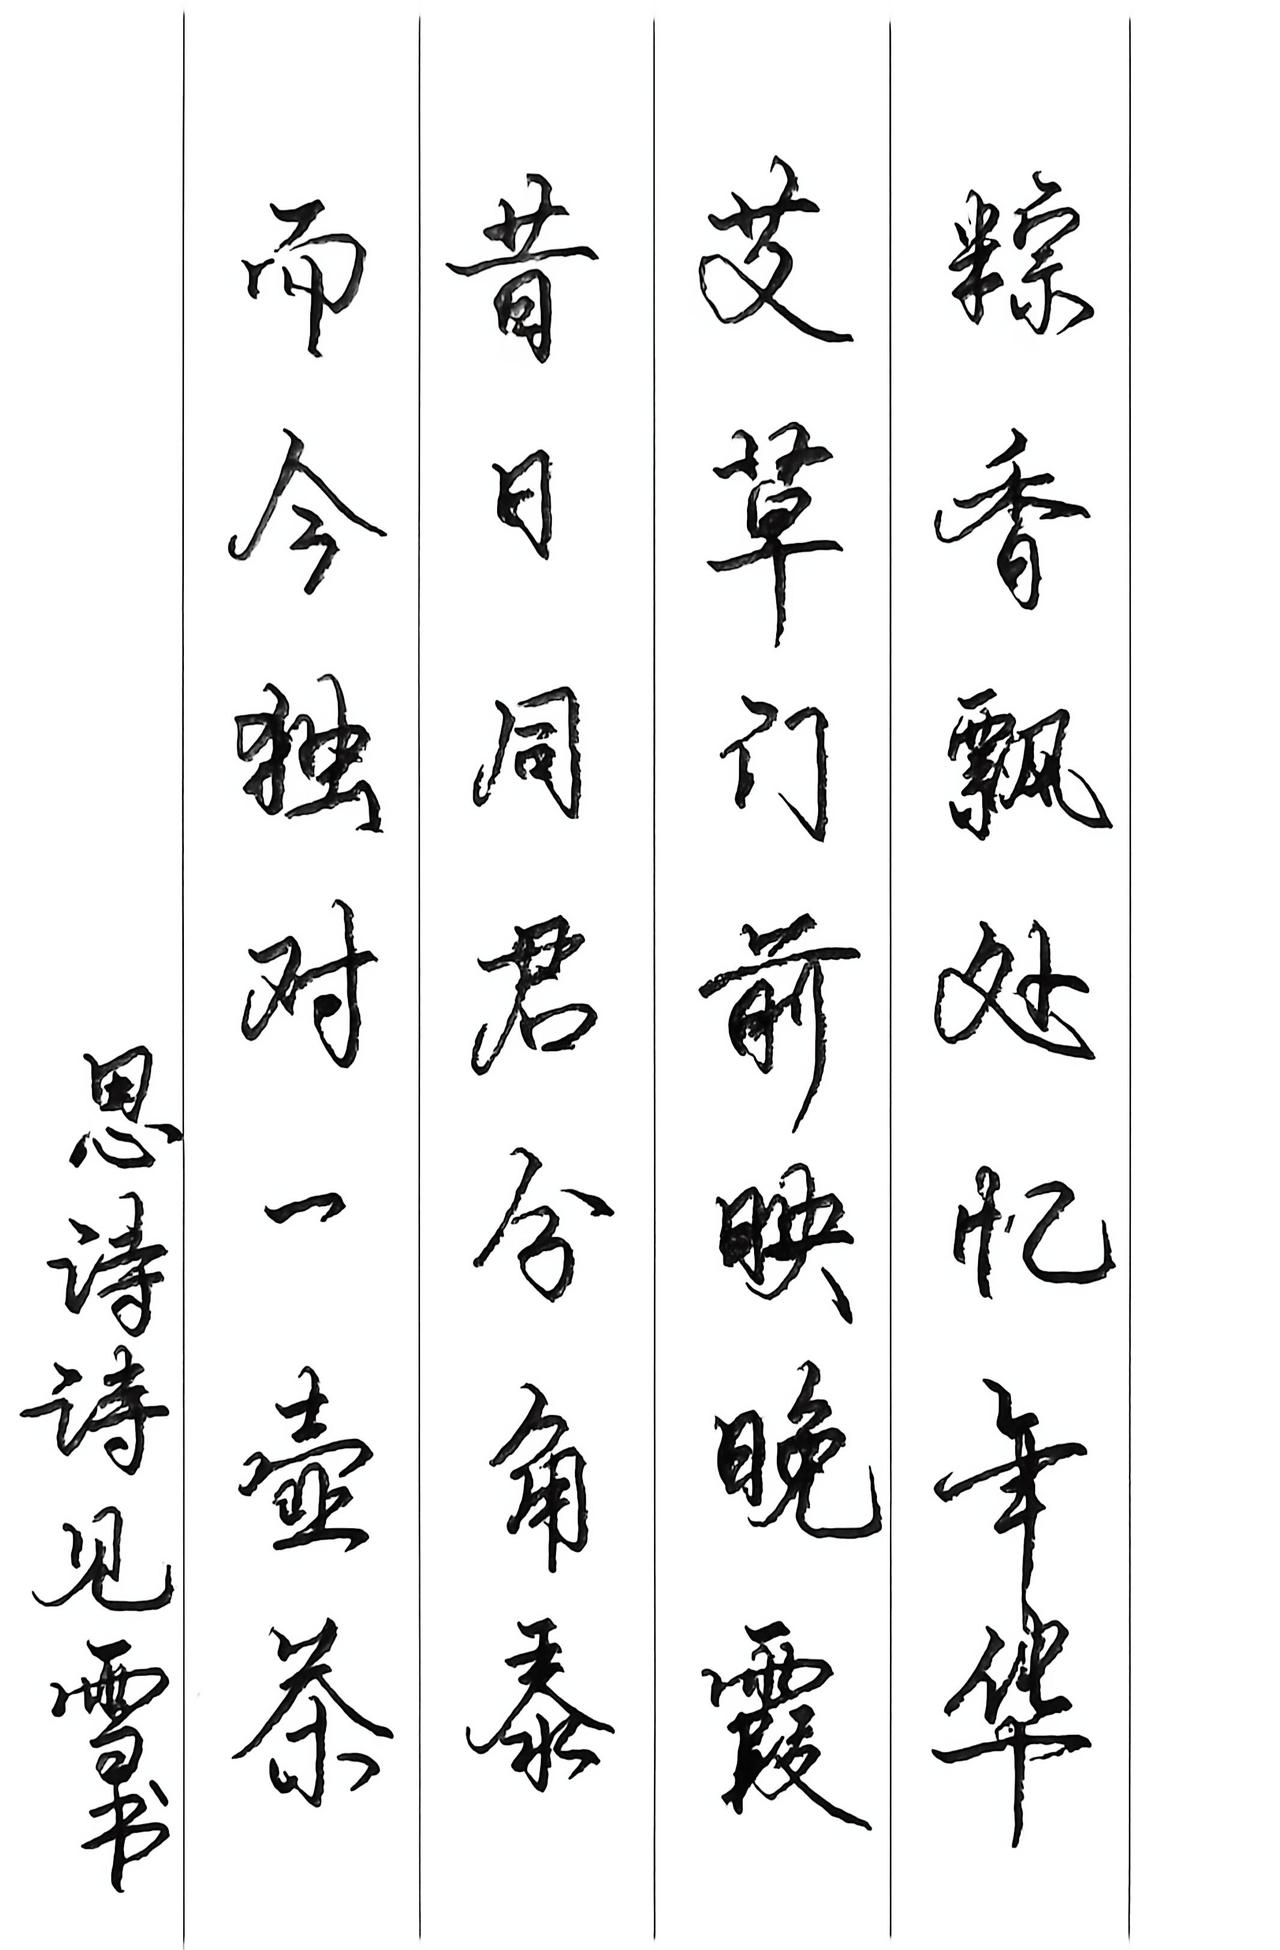 粽香飘处忆年华
艾草门前映晚霞
昔日同君分角黍
而今独对一壶茶
思诗诗见雪书